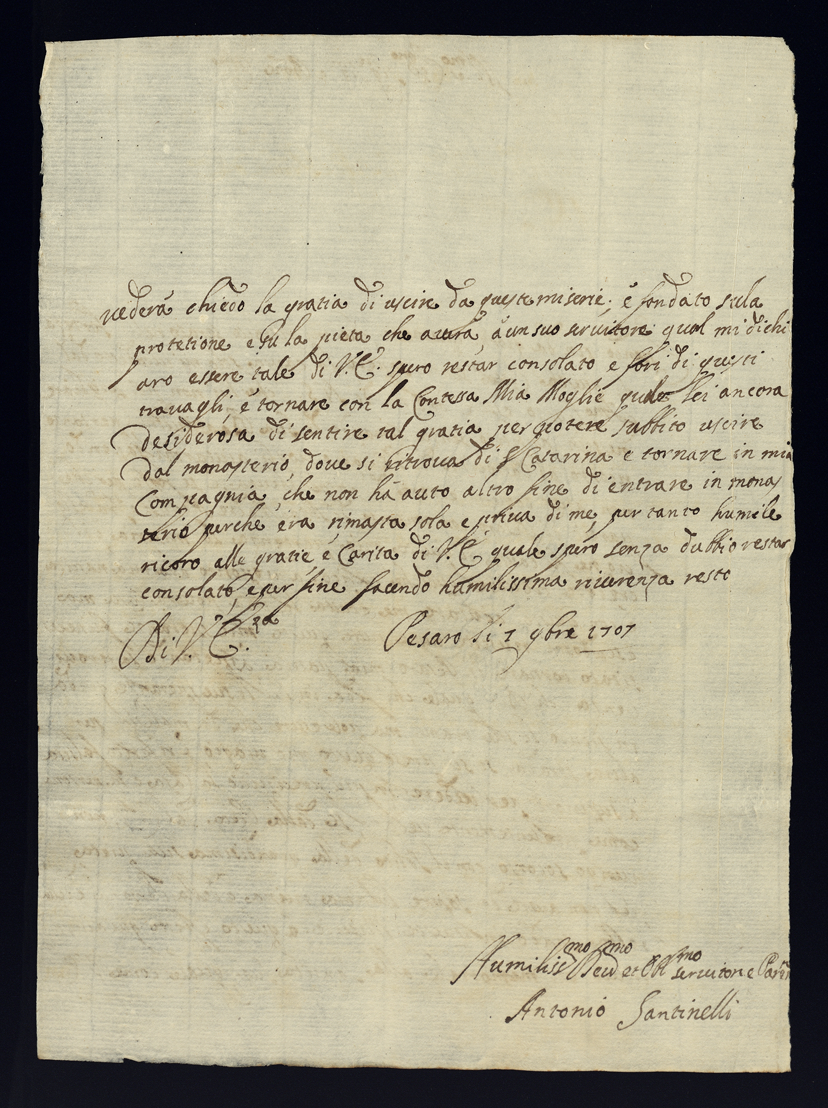 vederà chiedo la gratia di uscire da queste miserie, e fondato sula
protetione e su la pieta che avera à un suo servitore qual mi dichi
aro essere tale di V. E. spero restar consolato e fori di questi
travagli, e tornare con la Contessa Mia Moglie quale lei ancora
desiderosa di sentire tal gratia per potere subbito uscire
dal monasterio, dove si ritrova di S Catarina e tornare in mia
Compagnia, che non hà auto altro fine di entrare in monas
terio perche era rimasta sola e priva di me, per tanto humile
ricoro alle gratie, e Carita di V. E. quale spero senza dubbio restar
consolato, e per fine facendo humilissima riverenza resto
Di V. E.za Pesaro li 7 9bre 1707
Humiliss.mo Dev.mo et Ob.mo servitore
Antonio Santinelli